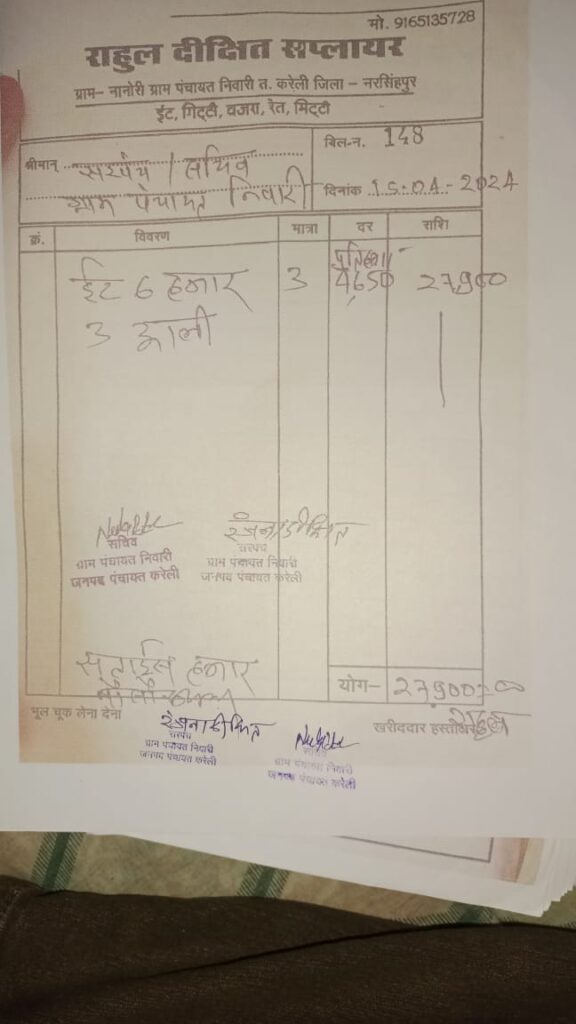 मो. 9165135728
राहुल दीक्षित सप्लायर
ग्राम– नानोरी ग्राम पंचायत निवारी त. करेली जिला – नरसिंहपुर
ईट, गिट्टी, वजरा, रेत, मिट्टी
श्रीमान् सरपंच / सचिव
ग्राम पंचायत निवारी
बिल-न. 148
दिनांक 15-04-2024
क्रं. विवरण मात्रा दर राशि
ईट 6 हजार 3 4,650 27,900
3 ट्राली
सचिव
ग्राम पंचायत निवारी
जनपद पंचायत करेली
रंजना दीक्षित
सरपंच
ग्राम पंचायत निवारी
जनपद पंचायत करेली
सत्ताईस हजार
नौ सौ
योग– 27,900=00
भूल चूक लेना देना
खरीददार हस्ताक्षर
राहुल
रंजना दीक्षित
सरपंच
ग्राम पंचायत निवारी
जनपद पंचायत करेली
सचिव
ग्राम पंचायत निवारी
जनपद पंचायत करेली